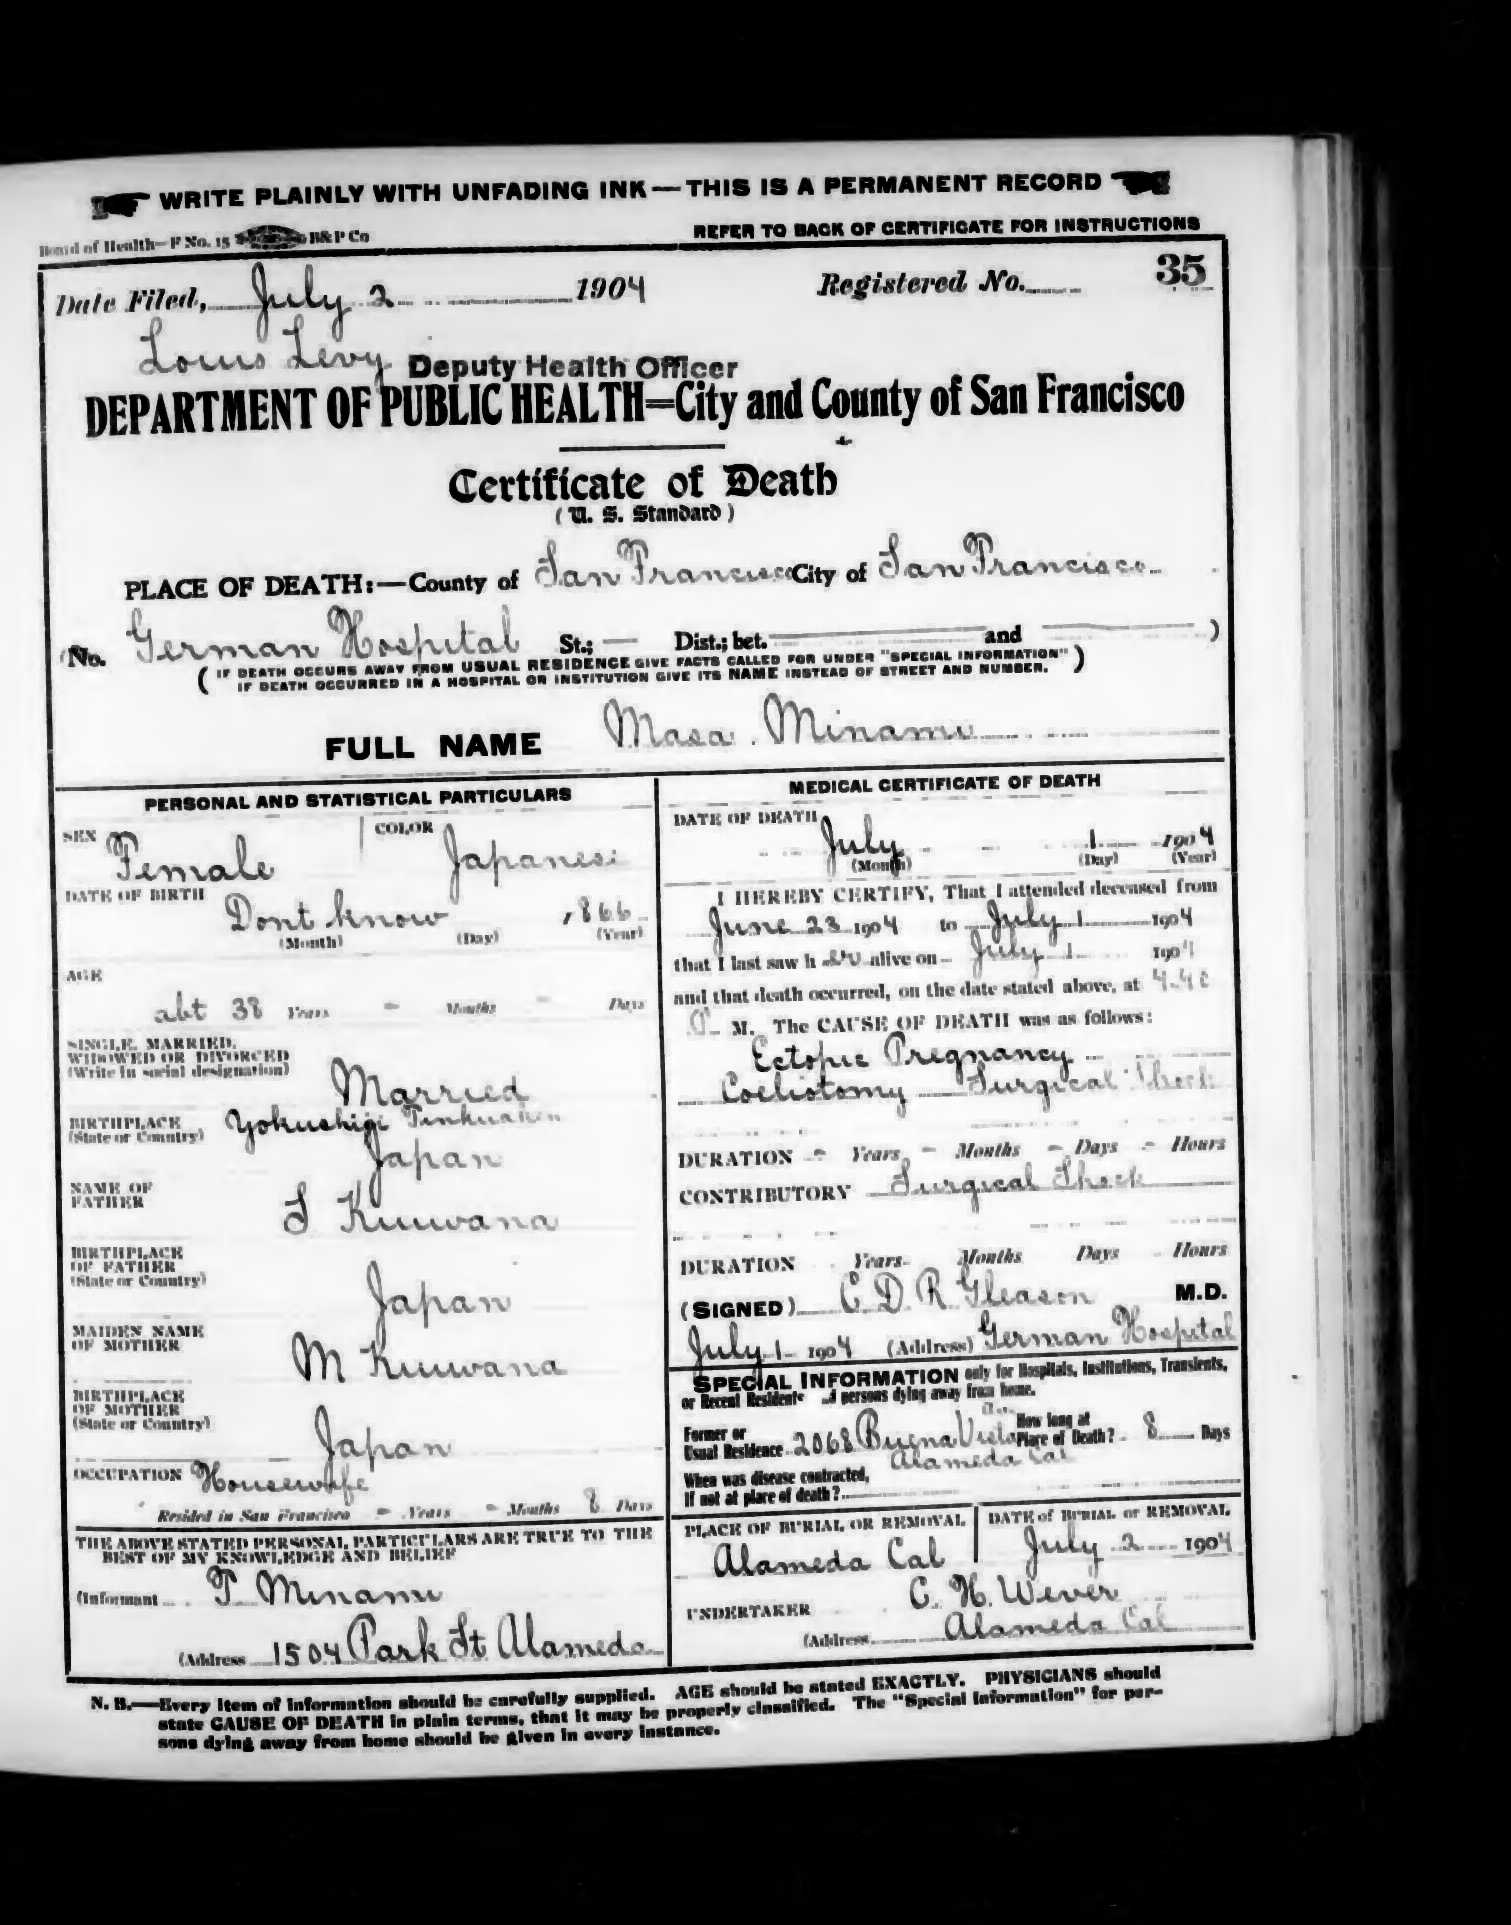 WRITE PLAINLY WITH UNFADING INK — THIS IS A PERMANENT RECORD
Board of Health—F No. 15 B&P Co
REFER TO BACK OF CERTIFICATE FOR INSTRUCTIONS
Date Filed, July 2 1904 Registered No. 35
Louis Levy Deputy Health Officer
DEPARTMENT OF PUBLIC HEALTH=City and County of San Francisco
Certificate of Death
(U. S. Standard)
PLACE OF DEATH:—County of San Francisco City of San Francisco
(No. German Hospital St.; — Dist.; bet. and )
(IF DEATH OCCURS AWAY FROM USUAL RESIDENCE GIVE FACTS CALLED FOR UNDER "SPECIAL INFORMATION"
IF DEATH OCCURRED IN A HOSPITAL OR INSTITUTION GIVE ITS NAME INSTEAD OF STREET AND NUMBER.)
FULL NAME Masa Minami
PERSONAL AND STATISTICAL PARTICULARS
SEX Female COLOR Japanese
DATE OF BIRTH
Dont know 1866
(Month) (Day) (Year)
AGE
abt 38 Years - Months - Days
SINGLE, MARRIED,
WIDOWED OR DIVORCED
(Write in social designation)
Married
BIRTHPLACE
(State or Country)
Yokushigi
Japan
NAME OF
FATHER
S Kuwana
BIRTHPLACE
OF FATHER
(State or Country)
Japan
MAIDEN NAME
OF MOTHER
M Kuwana
BIRTHPLACE
OF MOTHER
(State or Country)
Japan
OCCUPATION Housewife
Resided in San Francisco - Years - Months 8 Days
THE ABOVE STATED PERSONAL PARTICULARS ARE TRUE TO THE
BEST OF MY KNOWLEDGE AND BELIEF
(Informant T Minami
(Address 1504 Park St Alameda
MEDICAL CERTIFICATE OF DEATH
DATE OF DEATH
July 1 1904
(Month) (Day) (Year)
I HEREBY CERTIFY, That I attended deceased from
June 23 1904 to July 1 1904
that I last saw her alive on July 1 1904
and that death occurred, on the date stated above, at 4-40
M. The CAUSE OF DEATH was as follows:
Ectopic Pregnancy
Coeliotomy Surgical Shock
DURATION - Years - Months - Days - Hours
CONTRIBUTORY Surgical Shock
DURATION Years Months Days Hours
(SIGNED) C D R Gleason M.D.
July 1 1904 (Address) German Hospital
SPECIAL INFORMATION only for Hospitals, Institutions, Transients,
or Recent Residents and persons dying away from home.
Former or
Usual Residence 2068 Buena Vista Ave
Alameda Cal
How long at
Place of Death? 8 Days
When was disease contracted,
If not at place of death?
PLACE OF BURIAL OR REMOVAL
Alameda Cal
DATE of BURIAL or REMOVAL
July 2 1904
UNDERTAKER C. H. Wever
(Address Alameda Cal
N. B.—Every item of information should be carefully supplied. AGE should be stated EXACTLY. PHYSICIANS should
state CAUSE OF DEATH in plain terms, that it may be properly classified. The "Special Information" for per-
sons dying away from home should be given in every instance.